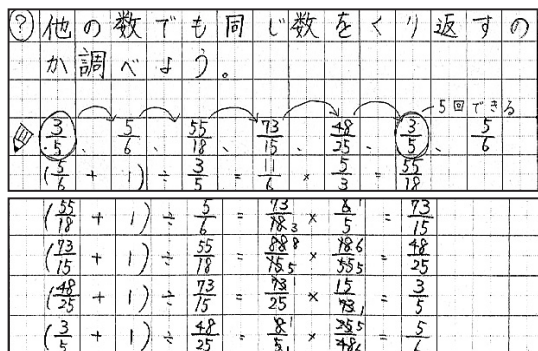 ? 他の数でも同じ数をくり返すの
か調べよう。
5回できる
3/5、5/6、55/18、73/15、48/25、3/5、5/6
(5/6 + 1) ÷ 3/5 = 11/6 × 5/3 = 55/18
(55/18 + 1) ÷ 5/6 = 73/18 3 × 6 1/5 = 73/15
(73/15 + 1) ÷ 55/18 = 88 8/15 5 × 18 6/55 5 = 48/25
(48/25 + 1) ÷ 73/15 = 73 1/25 × 15/73 1 = 3/5
(3/5 + 1) ÷ 48/25 = 8 1/5 1 × 25 5/48 6 = 5/6